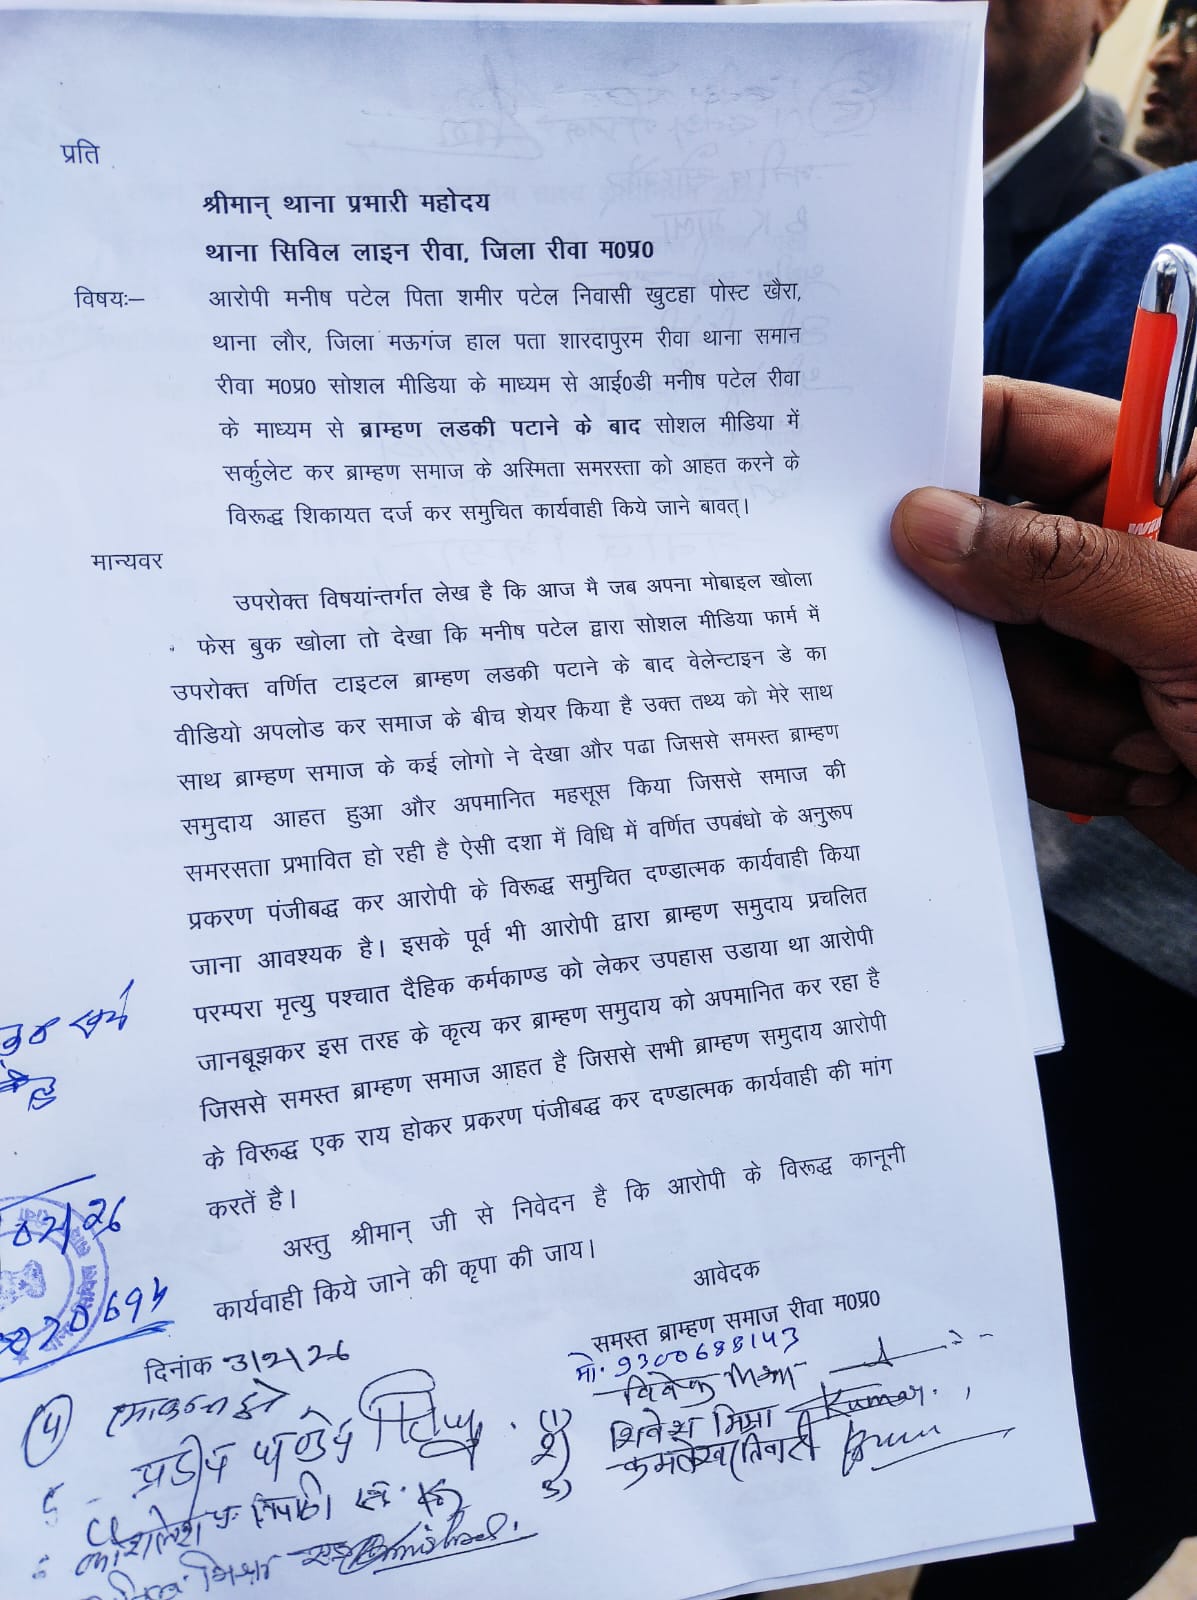 प्रति
श्रीमान् थाना प्रभारी महोदय
थाना सिविल लाइन रीवा, जिला रीवा म0प्र0
विषयः– आरोपी मनीष पटेल पिता शमीर पटेल निवासी खुटहा पोस्ट खैरा,
थाना लौर, जिला मऊगंज हाल पता शारदापुरम रीवा थाना समान
रीवा म0प्र0 सोशल मीडिया के माध्यम से आई0डी मनीष पटेल रीवा
के माध्यम से ब्राम्हण लडकी पटाने के बाद सोशल मीडिया में
सर्कुलेट कर ब्राम्हण समाज के अस्मिता समरस्ता को आहत करने के
विरूद्ध शिकायत दर्ज कर समुचित कार्यवाही किये जाने बावत्।
मान्यवर
उपरोक्त विषयांन्तर्गत लेख है कि आज मै जब अपना मोबाइल खोला
फेस बुक खोला तो देखा कि मनीष पटेल द्वारा सोशल मीडिया फार्म में
उपरोक्त वर्णित टाइटल ब्राम्हण लडकी पटाने के बाद वेलेन्टाइन डे का
वीडियो अपलोड कर समाज के बीच शेयर किया है उक्त तथ्य को मेरे साथ
साथ ब्राम्हण समाज के कई लोगो ने देखा और पढा जिससे समस्त ब्राम्हण
समुदाय आहत हुआ और अपमानित महसूस किया जिससे समाज की
समरसता प्रभावित हो रही है ऐसी दशा में विधि में वर्णित उपबंधो के अनुरूप
प्रकरण पंजीबद्ध कर आरोपी के विरूद्ध समुचित दण्डात्मक कार्यवाही किया
जाना आवश्यक है। इसके पूर्व भी आरोपी द्वारा ब्राम्हण समुदाय प्रचलित
परम्परा मृत्यु पश्चात दैहिक कर्मकाण्ड को लेकर उपहास उडाया था आरोपी
जानबूझकर इस तरह के कृत्य कर ब्राम्हण समुदाय को अपमानित कर रहा है
जिससे समस्त ब्राम्हण समाज आहत है जिससे सभी ब्राम्हण समुदाय आरोपी
के विरूद्ध एक राय होकर प्रकरण पंजीबद्ध कर दण्डात्मक कार्यवाही की मांग
करतें है।
अस्तु श्रीमान् जी से निवेदन है कि आरोपी के विरूद्ध कानूनी
कार्यवाही किये जाने की कृपा की जाय।
आवेदक
समस्त ब्राम्हण समाज रीवा म0प्र0
मो. 9300688143
दिनांक 3/2/26
विवेक
शिवेश मिश्रा Kumar
प्रदीप पाण्डेय